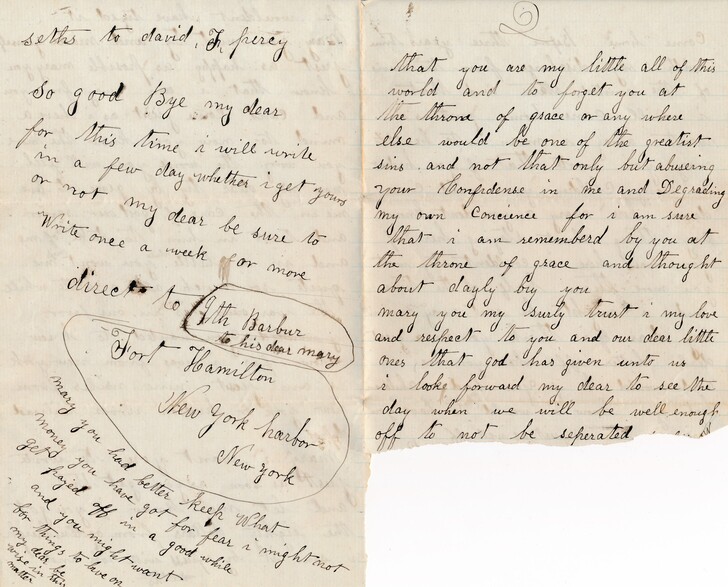 seths to david, F, percy
So good Bye my dear
for this time i will write
in a few day whether i get yours
or not my dear be sure to
Write once a week for more
direct to
Jth Barbur
to his dear mary
Fort Hamilton
New York harbor
New York
mary you had better keep What
money you have got for fear i might not
get payed off in a good while
and you might want
for things to live on
my dear be
wise in this
matter
that you are my little all of this
world and to forget you at
the throne of grace or any where
else would be one of the greatist
sins and not that only but abuseing
your Confidense in me and Degrading
my own Concience for i am sure
that i am rememberd by you at
the throne of grace and thought
about dayly buy you
mary you my surly trust i my love
and respect to you and our dear little
ones that god has given unto us
i look forward my dear to see the
day when we will be well enough
off to not be seperated